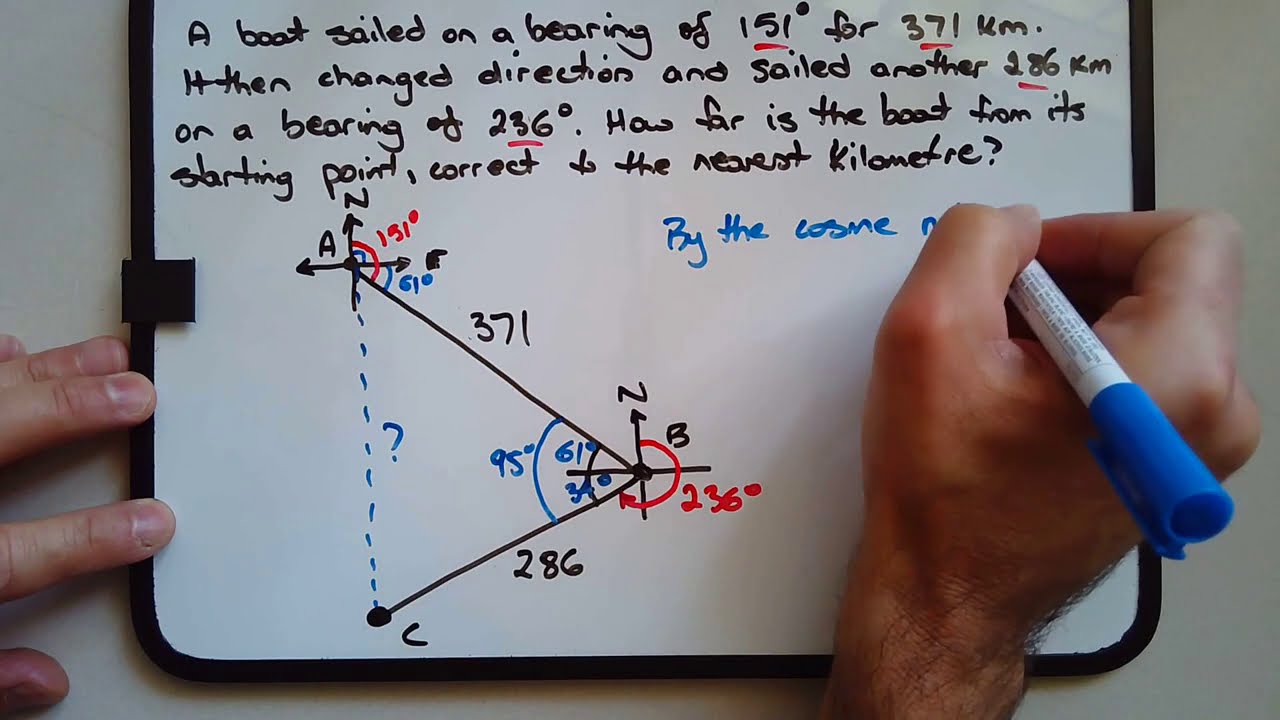 A boat sailed on a bearing of 151° for 371 km.
It then changed direction and sailed another 286 km
on a bearing of 236°. How far is the boat from its
starting point, correct to the nearest kilometre?
N
A
151°
E
61°
By the cosine
371
N
B
?
95°
61°
34°
236°
286
C